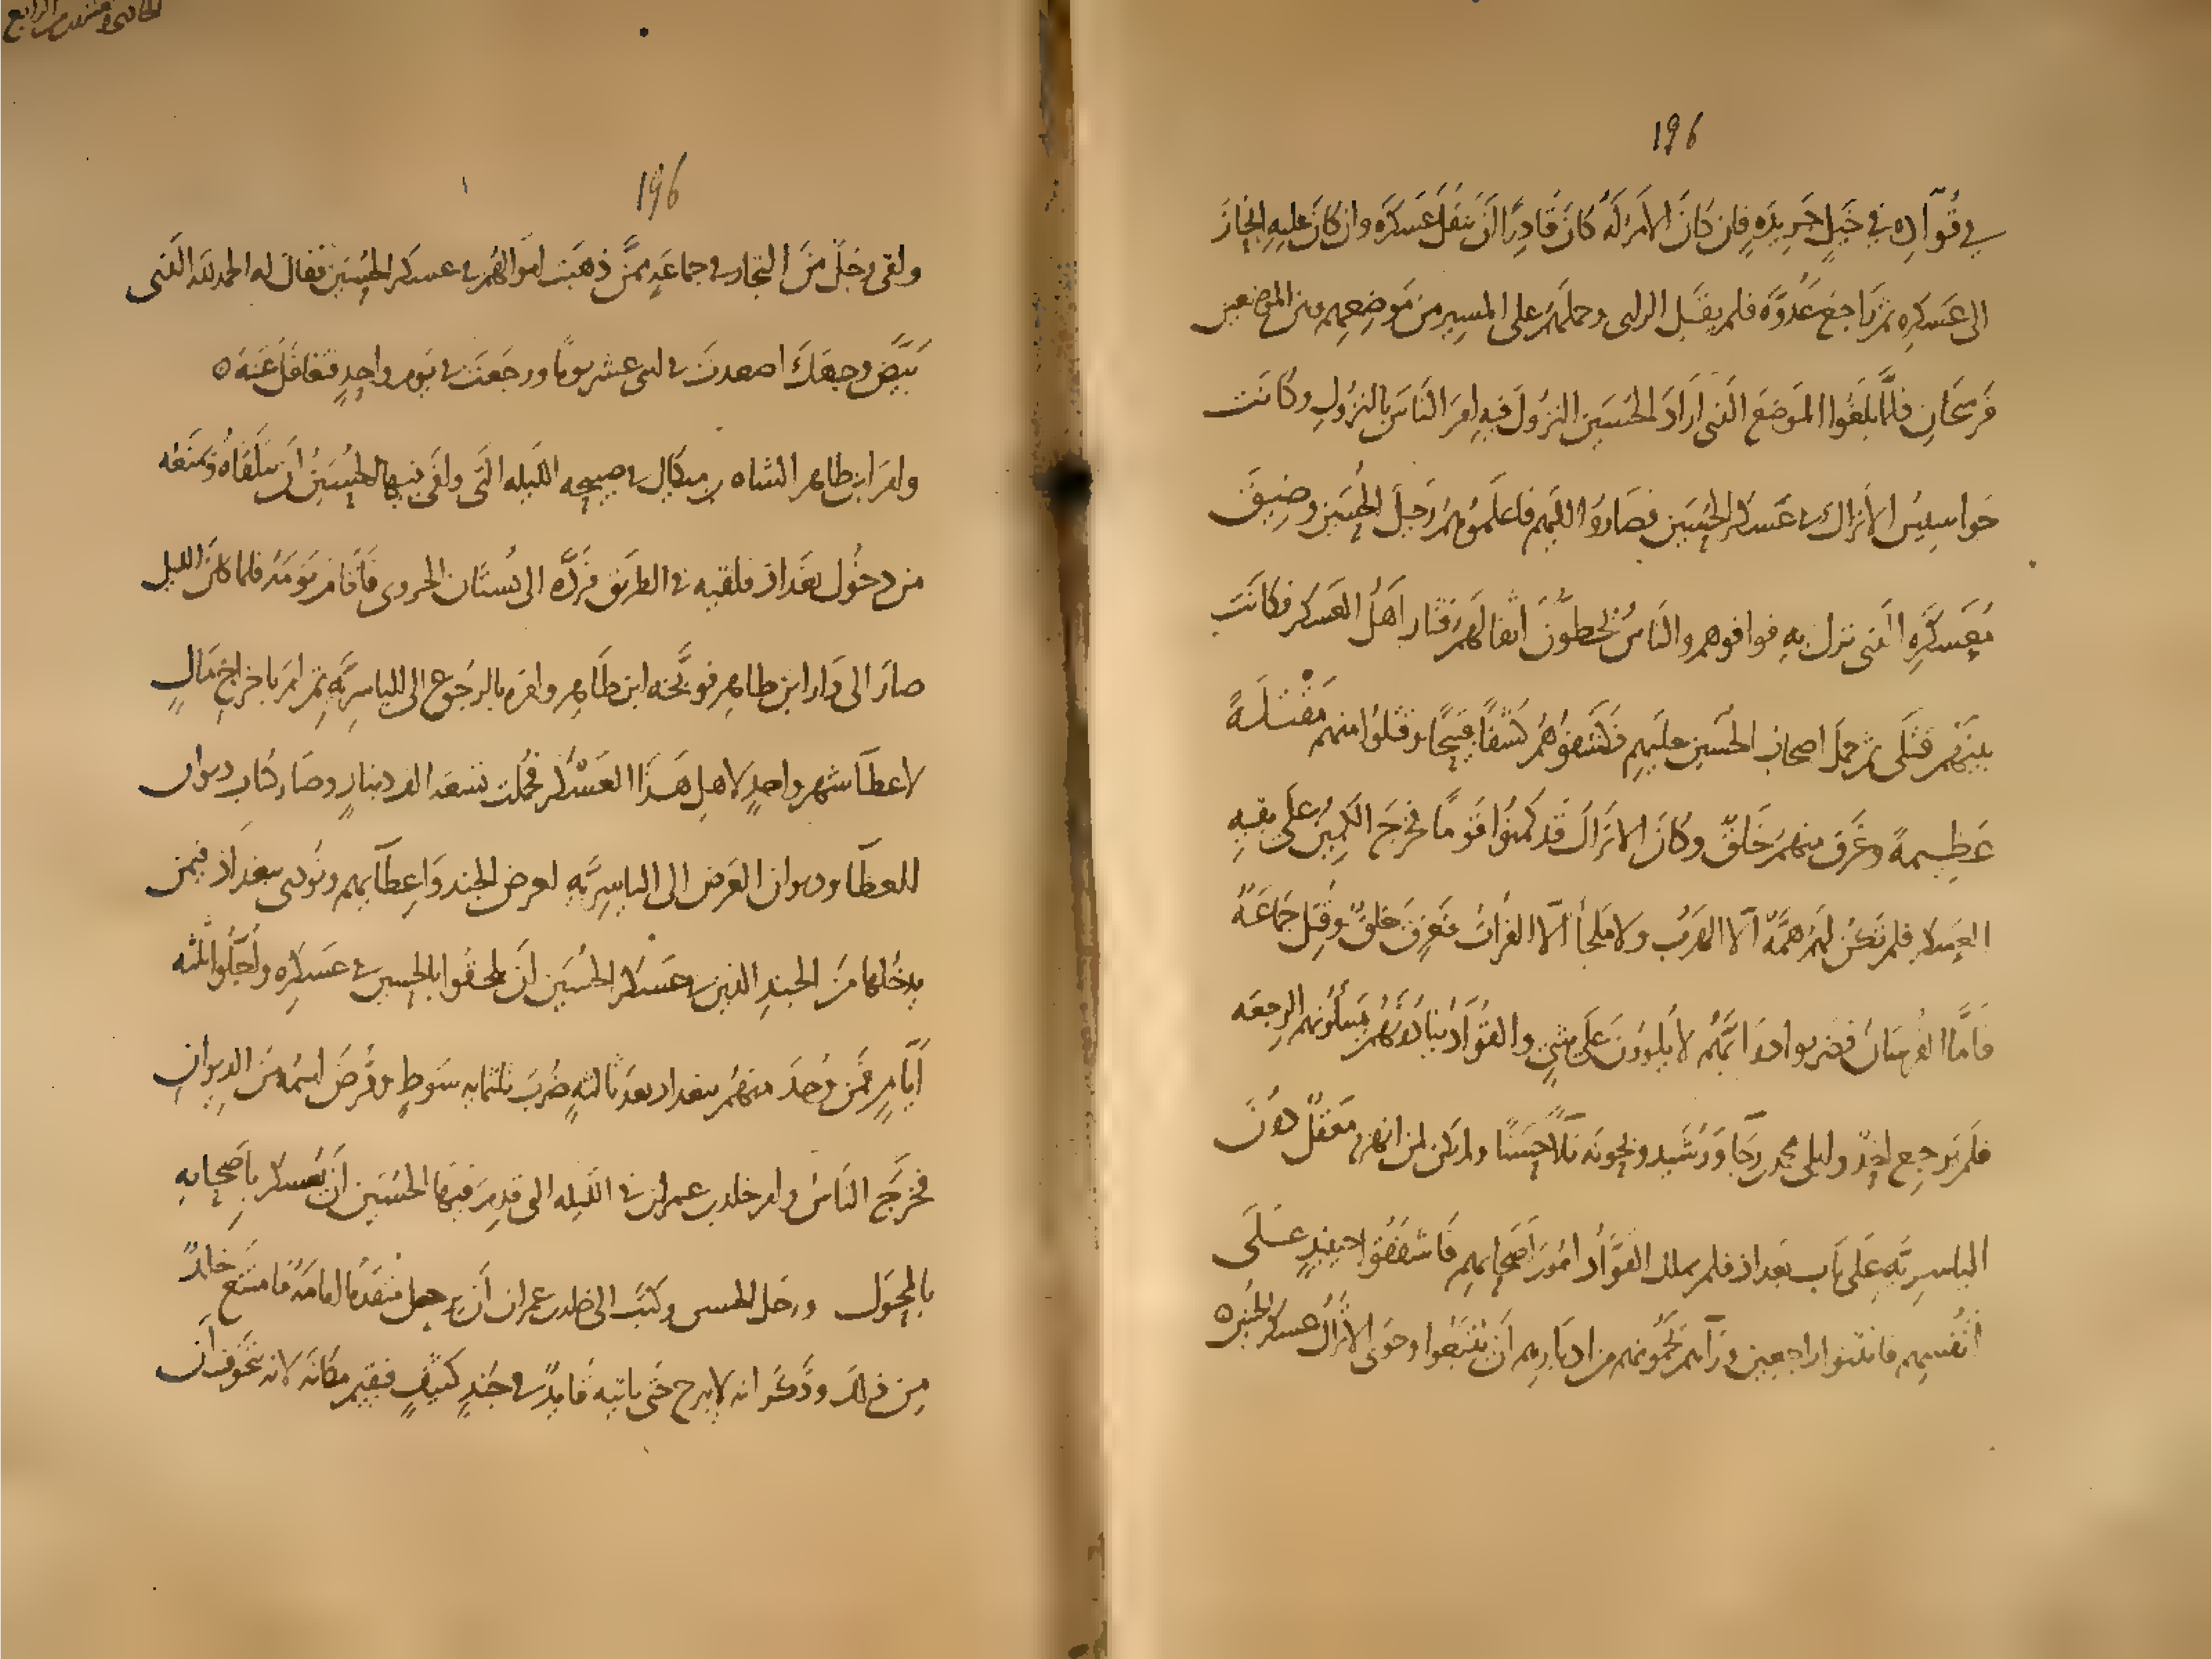 196
في قُوّاده في خَيلٍ جَريدهٍ فإن كانَ الامرُ لَهُ كانَ قَادِرًا اَن يَنقُلَ عَسكَرَه وان كانَ عليهِ انحازَ
الى عَسكَرِه ثمّ رَاجعَ عَدُوَّه فلم يقبَل الراى وحملَهُم على المسِيرِ من مَوضِعِهِم وبين الموضعين
فَرسَخَانِ فلمّا بلَغُوا الموضعَ الّذى ارادَ الحُسَين النزُولَ فيهِ امرَ النّاسَ بالنزُولِ وكانَت
جَواسِيسُ الاتراك في عَسكَرِ الحُسَين فصَارُوا اليهِم فاعلَمُوهُم رَحيلَ الحُسَين وضِيقَ
مُعَسكَرِه الّذى نزل به فوافوهم والنّاسُ يحُطّونَ اثقالَهُم فثار اَهلُ العَسكر فكانَت
بينَهُم قتلَى ثم حمَلَ اصحاب الحُسَين عليهِم فكَشَفوُهُم كشفًا قبيحًا وقَتلوُا منهم مَقتَلَةً
عَظِيمةً وغَرقَ منهُم خَلقٌ وكانَ الاتراكُ قَد كمَنُوا قَومًا فخرَجَ الكَمِينُ على بقيهِ
العَسكر فلم تَكُن لَهُم هِمَّةٌ اِلّا الهرَبُ ولا مَلجأ اِلّا الفراتُ فغَرِقَ خَلقٌ وقُتِل جَماعَةٌ
فَامّا الفُرسَانُ فضَربوا دوَابَّهُم لا يَلوُونَ عَلى شىءٍ والقُوَّادُ يُنادُونَهُم يَسئلُونهم الرجعَه
فلَم يَرجِع احدٌ وابلى محمد رَجَا وَرُشَيد ونحوُه بَلاءً حَسَنًا ولم يَكُن لمن انهزمَ مَعقِلٌ دُونَ
الياسِرِيَّةِ على بَاب بغداذ فلم يملك القُوَّادُ امُورَ اَصحابِهم فاَشفَقوُا حينيذٍ عَلَى
أنفُسِهِم فانثنوا راجعين وراَهُم يحمُونهم من ادبارِهم أن يُتبَعُوا وحوَى الاتراكُ عسكر الحُسَين
196
ولقى رجُلٌ منَ التجار في جماعَةٍ ممَّن ذهَبَت اموالهُم في عسكر الحُسَين فقال له الحمد لله الّذى
بَيَّضَ وجهَكَ اصعدتَ في اثنى عشر يومًا ورجَعتَ في يَومٍ واحِدٍ فتغافَلَ عَنهُ
وامر ابن طاهر الشاه بن ميكال في صبيحه اللّيله التى وافَى فيها الحُسَينُ أن يتلقّاهُ ويمنَعَه
من دخُول بغداذ فلقيه في الطريق فردَّه الى بُستان الحروى فَاَقامَ يَومَهُ فلما كانَ الليل
صارَ الى دَار ابن طاهر فوبَّخه ابن طَاهِر وامَره بالرجُوع الى الياسِرِيَّةِ ثم امرَ باخراجِ مَالٍ
لاعطآ شهر واحدٍ لاهل هَذَا العَسكَر فحُملت تسعه الف دينارٍ وصَار كتاب ديوان
للعطآ وديوان العَرض الى الياسِرِيَّهِ لعرض الجُند وَاِعطآيِهم ونُودى ببغداذ فيمن
يدخُلها منَ الجندِ الذين في عَسكر الحُسَين اَن يلحقُوا بالحسين في عسكره واُجِّلُوا ثلثه
اَيّامٍ فمن وُجدَ منهُم ببغداد بعدَ ثالثهٍ ضُربَ ثلثمايه سَوطٍ وقُرضَ اسمُه منَ الديوانِ
فخَرَجَ النّاسُ وامر خلد بن عمران في اللّيله التى قدِمَ فيهَا الحُسَين اَن يُعَسكر بِاَصحابِه
بالمحوّل ودخل الحسين وكتبَ الى خلد بن عمران اَن يرحل متقدّمًا امامَهُ فامتنَع خَالدٌ
مِن ذلك وذَكرَ انه لا يبرح حتّى ياتيه قايدٌ في جُندٍ كثيفٍ فيقيم مكانَه لانه يتخوّفُ اَن